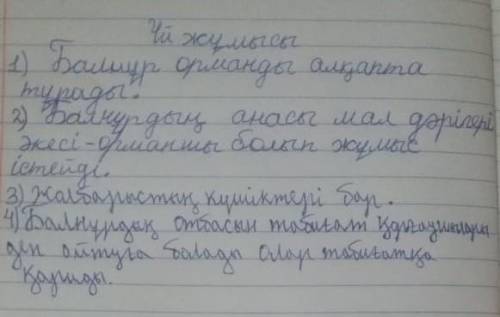 Үй жұмысы
1) Балнұр орманды алқапта
тұрады.
2) Балнұрдың анасы мал дәрігері
әкесі-орманшы болып жұмыс
істейді.
3) Жолбарыстың күшіктері бар.
4) Балнұрдақ отбасын табиғат қорғаушылары
деп айтуға болады олар табиғатқа
қарайды.